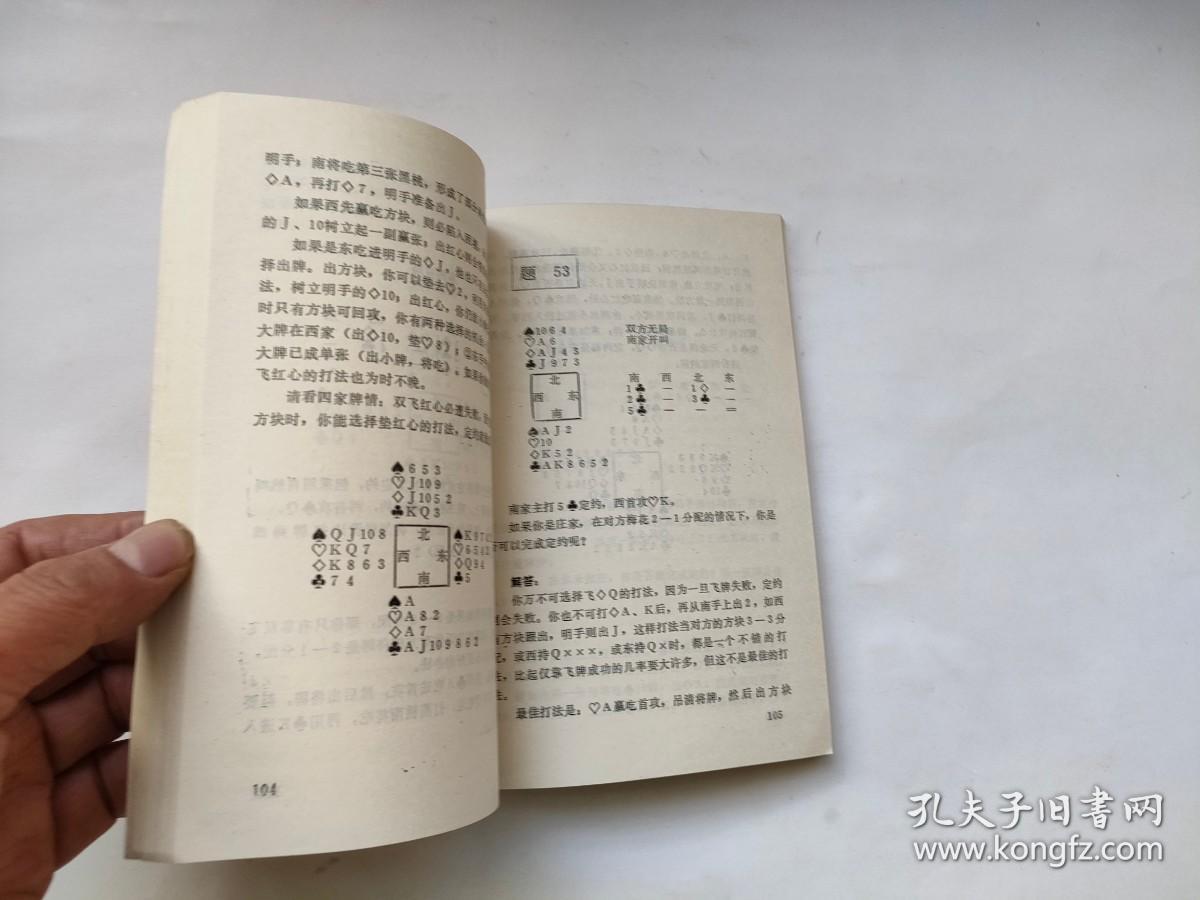 明手；南将吃第三张黑桃，形成了
◇A，再打◇7，明手准备出J。
如果西先赢吃方块，则必陷入
的J、10树立起一副赢张；出红心
如果是东吃进明手的◇J，他也不
择出牌。出方块，你可以垫去♡2，
法，树立明手的◇10；出红心，你
时只有方块可回攻，你有两种选择的
大牌在西家（出◇10，垫♡8）；②
大牌已成单张（出小牌，将吃）。如果
飞红心的打法也为时不晚。
请看四家牌情：双飞红心必遭失败，
方块时，你能选择垫红心的打法，定约
♠653
♡J109
◇J1052
♣KQ3
♠QJ108
♡KQ7
◇K863
♣74
北
西 东
南
♠K974
♡6543
◇Q94
♣5
♠A
♡A82
◇A7
♣AJ109862
104
题 53
♠1064
♡A6
◇AJ43
♣J973
双方无局
南家开叫
北
西 东
南
南 西 北 东
1♣ — 1◇ —
2♣ — 3♣ —
5♣ — — =
♠AJ2
♡10
◇K52
♣AK8652
南家主打5♣定约，西首攻♡K。
如果你是庄家，在对方梅花2—1分配的情况下，你是
可以完成定约呢？
解答：
你万不可选择飞◇Q的打法，因为一旦飞牌失败，定约
会失败。你也不可打◇A、K后，再从南手上出2，如西
方块跟出，明手则出J，这样打法当对方的方块3—3分
配，或西持Q×××，或东持Q×时，都是一个不错的打
法，比起仅靠飞牌成功的几率要大许多，但这不是最佳的打
法。
最佳打法是：♡A赢吃首攻，吊清将牌，然后出方块
105
孔夫子旧书网
www.kongfz.com